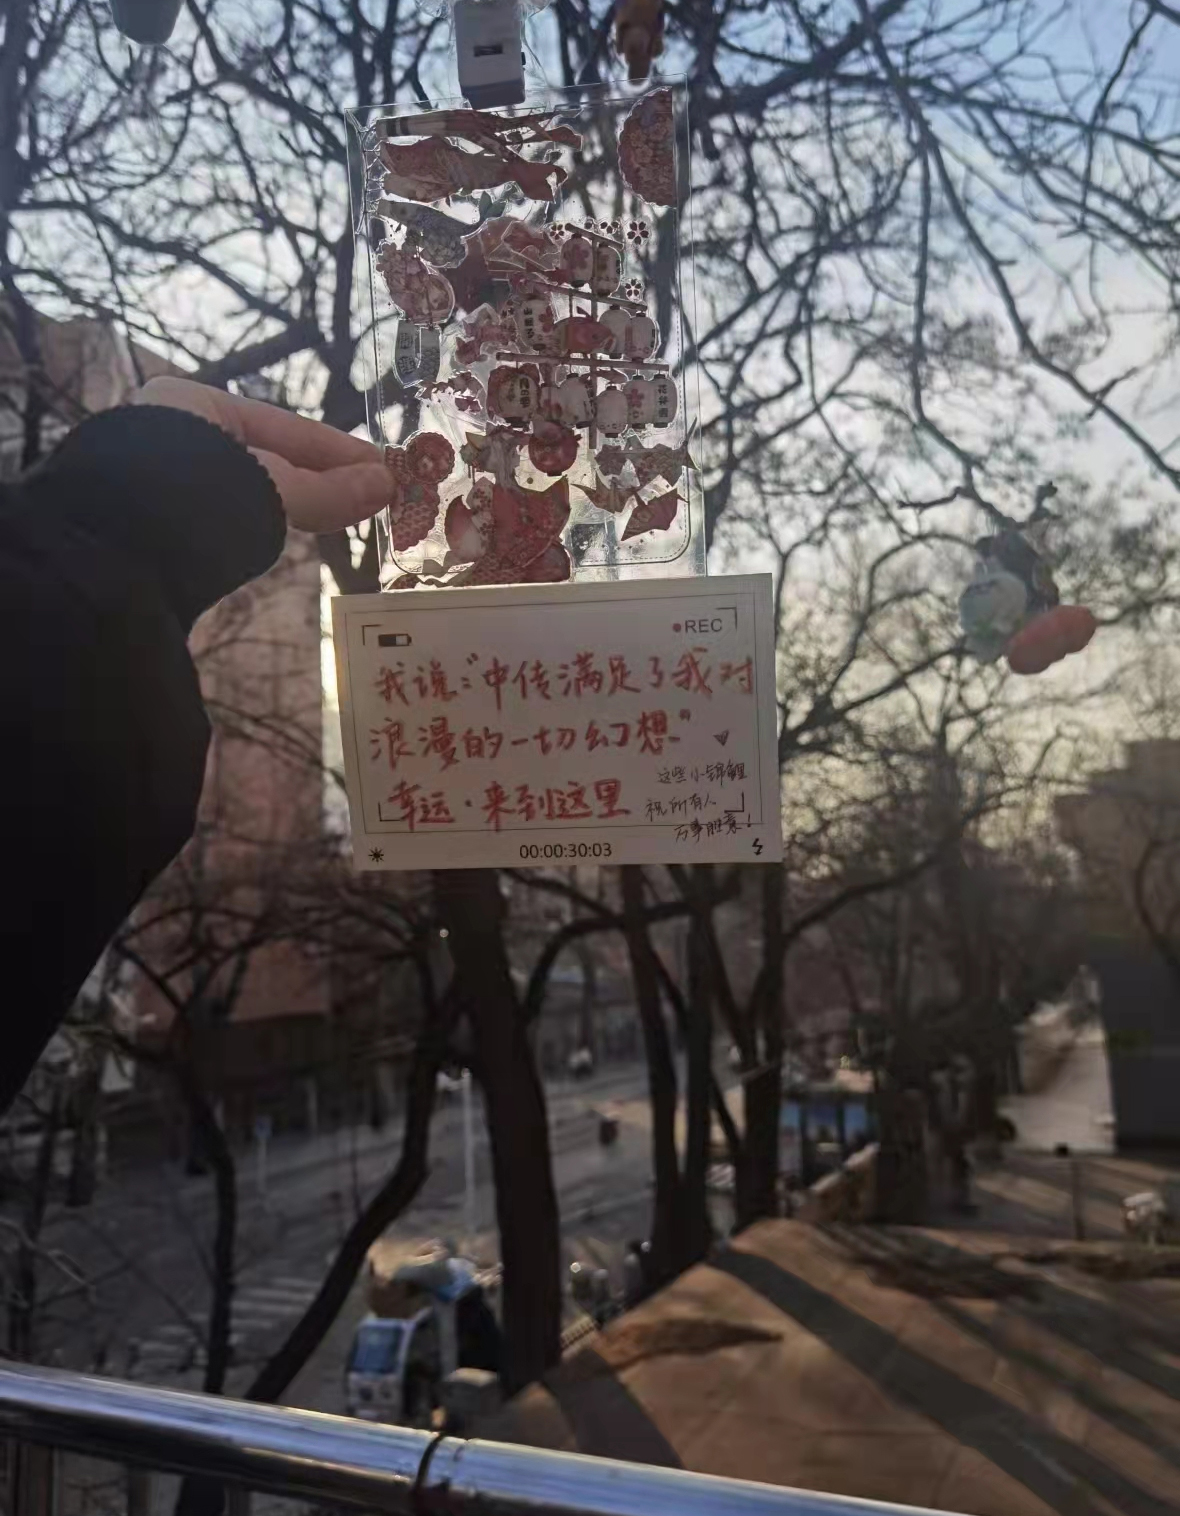 ●REC
我说:"中传满足了我对
浪漫的一切幻想"
幸运·来到这里
这些小锦鲤
祝所有人
万事胜意!
00:00:30:03